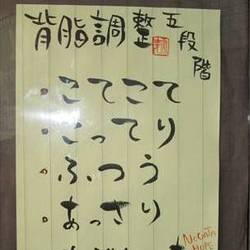 背脂調整五段階
・こてこて
・こってり
・ふつう
・あっさり